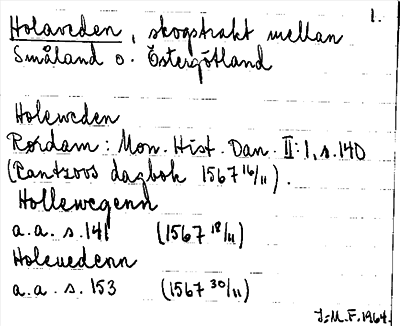 1.
Holaveden, skogstrakt mellan
Småland o. Östergötland
Holeweden
Rørdam: Mon. Hist. Dan. II:1, s.140
(Rantzovs dagbok 1567 16/11).
Hollewegenn
a.a. s.141 (1567 18/11)
Holeuedenn
a.a. s.153 (1567 30/11)
J-M.F. 1964.